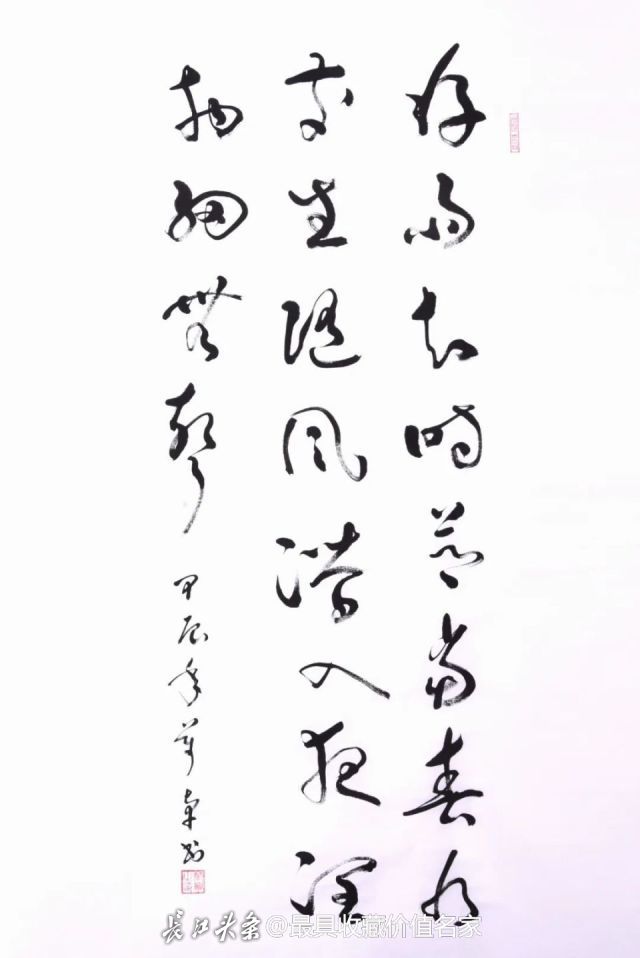 好雨知时節当春乃
发生随风潜入夜润
物细無聲
甲辰年
长江头条@最具收藏价值名家